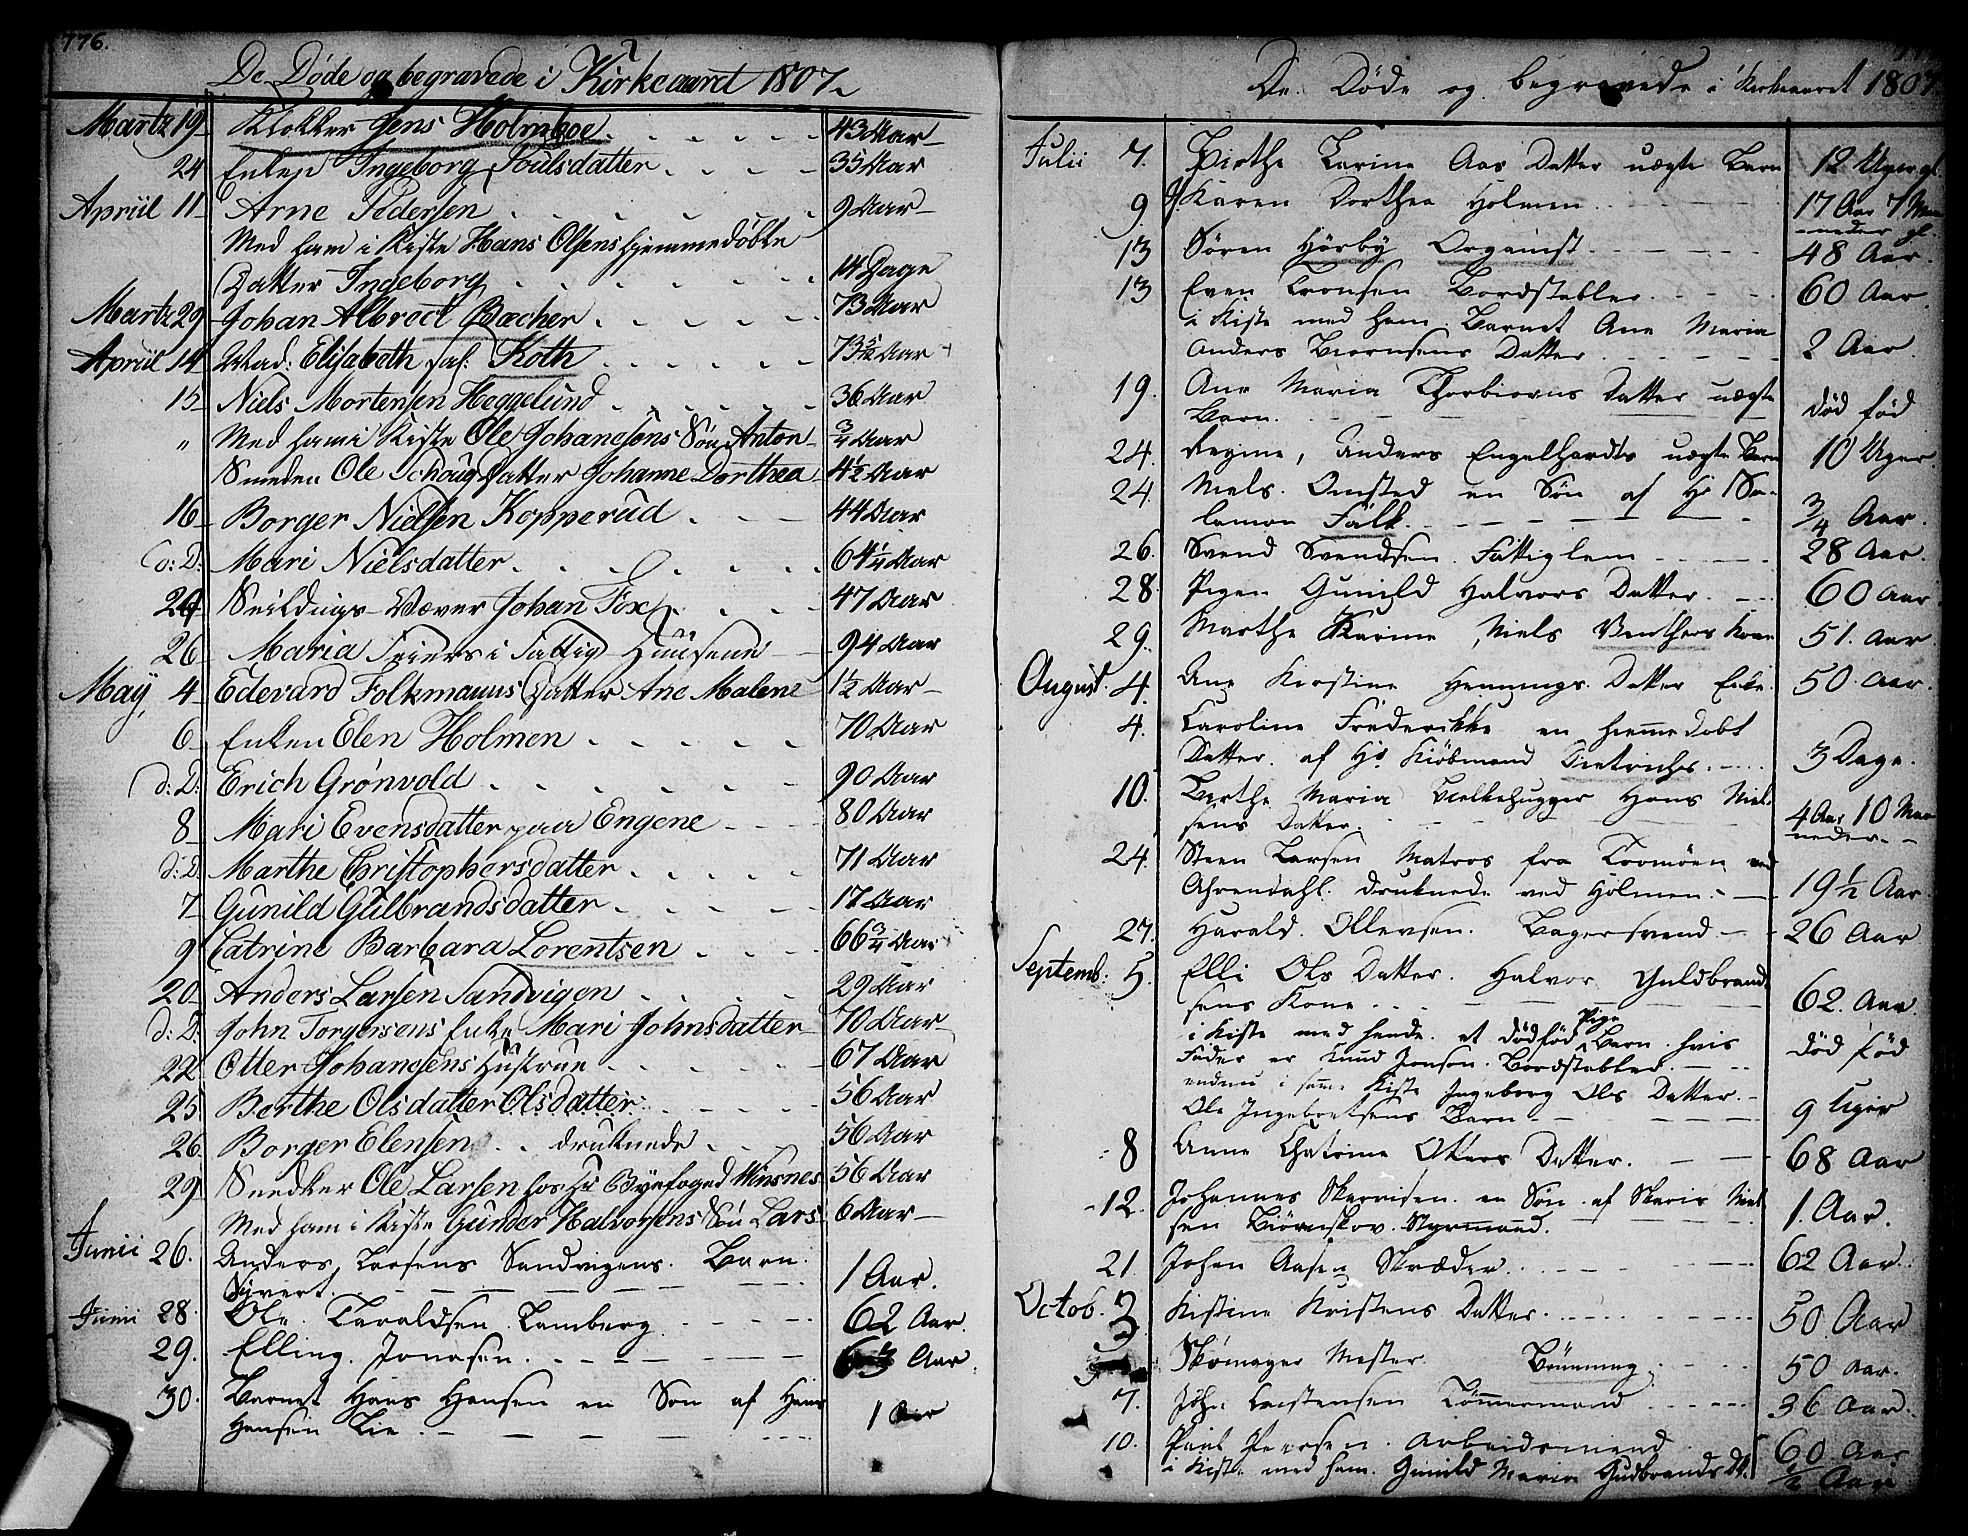 776.
De Døde og begravede i Kirkeaaret 1807
Martz 19 Klokker Jens Holmboe 43 Aar
24 Enken Ingeborg Poulsdatter 35 Aar
Apriil 11 Arne Pedersen 9 Aar
Med ham i Kiste Hans Olsens hjemmedøbte
Datter Ingeborg 14 Dage
Martz 29 Johan Albrect Bæcher 73 Aar
Apriil 14 Mad: Elisabeth sal: Koth Aar
15 Niels Mortensen Heggelund 36 Aar
" Med ham i Kiste Ole Johanesens Søn Anton 3/4 Aar
Smeden Ole Schoug Datter Johanne Dorthea 4 1/2 Aar
16 Borger Nielsen Kopperud 44 Aar
d: D: Mari Nielsdatter 64 1/4 Aar
Seildugs-Væver Johan Fox 47 Aar
26 Maria i Fattig Huusene 94 Aar
May 4 Edevard Folkmanns Datter Ane Malene 1 1/2 Aar
6 Enken Elen Holmen 70 Aar
d: D: Erich Grønvold 90 Aar
8 Mari Evensdatter paa Engene 80 Aar
d: D: Marthe Christophersdatter 71 Aar
7 Gunild Gulbrandsdatter Aar
9 Catrine Barbara Lorentsen 66 3/4 Aar
20 Anders Larsen Sandvigen 29 Aar
d: D: John Torgersens Enke Mari Johnsdatter 70 Aar
22 Otter Johanesens Hustrue 67 Aar
25 Berthe Olsdatter Olsdatter 56 Aar
26 Borger Elensen druknede 56 Aar
29 Snedker Ole Larsen hos Hr Byefoged Winsnes 56 Aar
Med ham i Kiste Gunder Halvorsens Søn Lars 6 Aar
Junii 26. Anders Larsens Sandvigens Barn
Syvert. 1 Aar.
Junii 28. Ole Taraldsen Lamberg 62 Aar.
29. Elling Jonasen Aar.
30. Barnet Hans Hansen en Søn af Hans
Hansen Lie 1 Aar
De Døde og begravede i Kirkeaaret 1807
Julii 7. Birthe Karine Aas Datter uægte Barn 12 Uger gl.
9. Karen Dorthea Holmen 17 Aar 7 Maa-
neder gl.
13 Søren Hörby Organist 48 Aar.
13 Even Tronsen Bordstabler 60 Aar
i Kiste med ham Barnet Ane Maria
Anders Biørnsens Datter 2 Aar.
19. Ane Maria Thorbiørns Datter uægte
Barn. død fød
24. Regine, Anders Engelhardts uægte Barn 10 Uger.
24. Niels Omsted en Søn af Hr Sa-
lamon Falk. 3/4 Aar.
26. Svend Svendsen Fattiglem 28 Aar.
28. Pigen Gunild Halvors Datter 60 Aar
29. Marthe Karine Niels Benthers Kone 51. Aar
August 4. Ane Kirstine Hennings Datter Enke 50. Aar.
4. Caroline Frederikke en hiemmedøbt
Datter af Hr Kiøbmand Dietrichs. 3 Dage.
10. Berthe Maria Bielkehugger Hans Niel-
sens Datter. 4 Aar 10 Maa-
neder.
24. Steen Larsen Matros fra Tromøen ved
Ahrendahl druknede ved Holmen. 19 1/2 Aar
27. Harald Ollevsen. Bagersvend 26 Aar
Septemb. 5. Elli Ols Datter Halvor Guldbrand-
sens Kone 62. Aar.
i Kiste med hende et dødfød Pige Barn hvis
Fader er Knud Jonson Bordstabler. død fød
endnu i samme Kiste Ingeborg Ols Datter.
Ole Ingebretsens Barn 9 Uger
8 Anne Chatrine Oters Datter. 68 Aar
12. Johannes Skarvisen en Søn af Niel-
sen Biørnskov Styrmand. 1. Aar.
21. Johan Aasen Skræder 62 Aar.
Octob. 3. Kistine Kristens Datter 50 Aar
Skomager Mester Bönning 50 Aar.
7. John Carstensen Tømmermand 36 Aar.
10. Poul Arbeidsmand 60 Aar
i Kiste med ham Gunild Maria Gudbrands Dt. 1/2 Aar